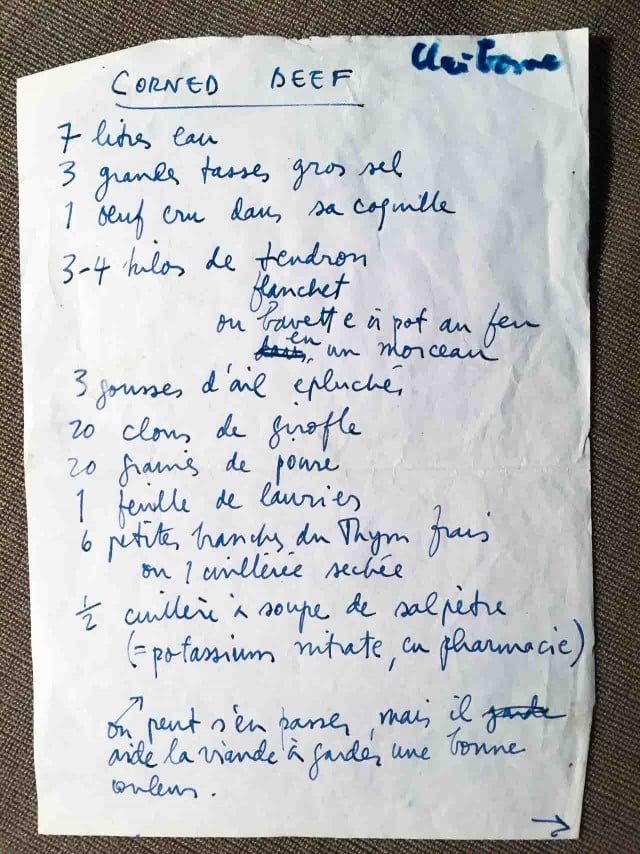 Claiborne
CORNED BEEF
7 litres eau
3 grandes tasses gros sel
1 oeuf cru dans sa coquille
3-4 kilos de tendron
flanchet
ou bavette à pot au feu
en un morceau
3 gousses d'ail épluchés
20 clous de girofle
20 grains de poivre
1 feuille de laurier
6 petites branches du Thym frais
ou 1 cuillérée sechée
1/2 cuillère à soupe de salpètre
(= potassium nitrate, en pharmacie)
↗
on peut s'en passer, mais il
aide la viande à garder une bonne
couleur.
→